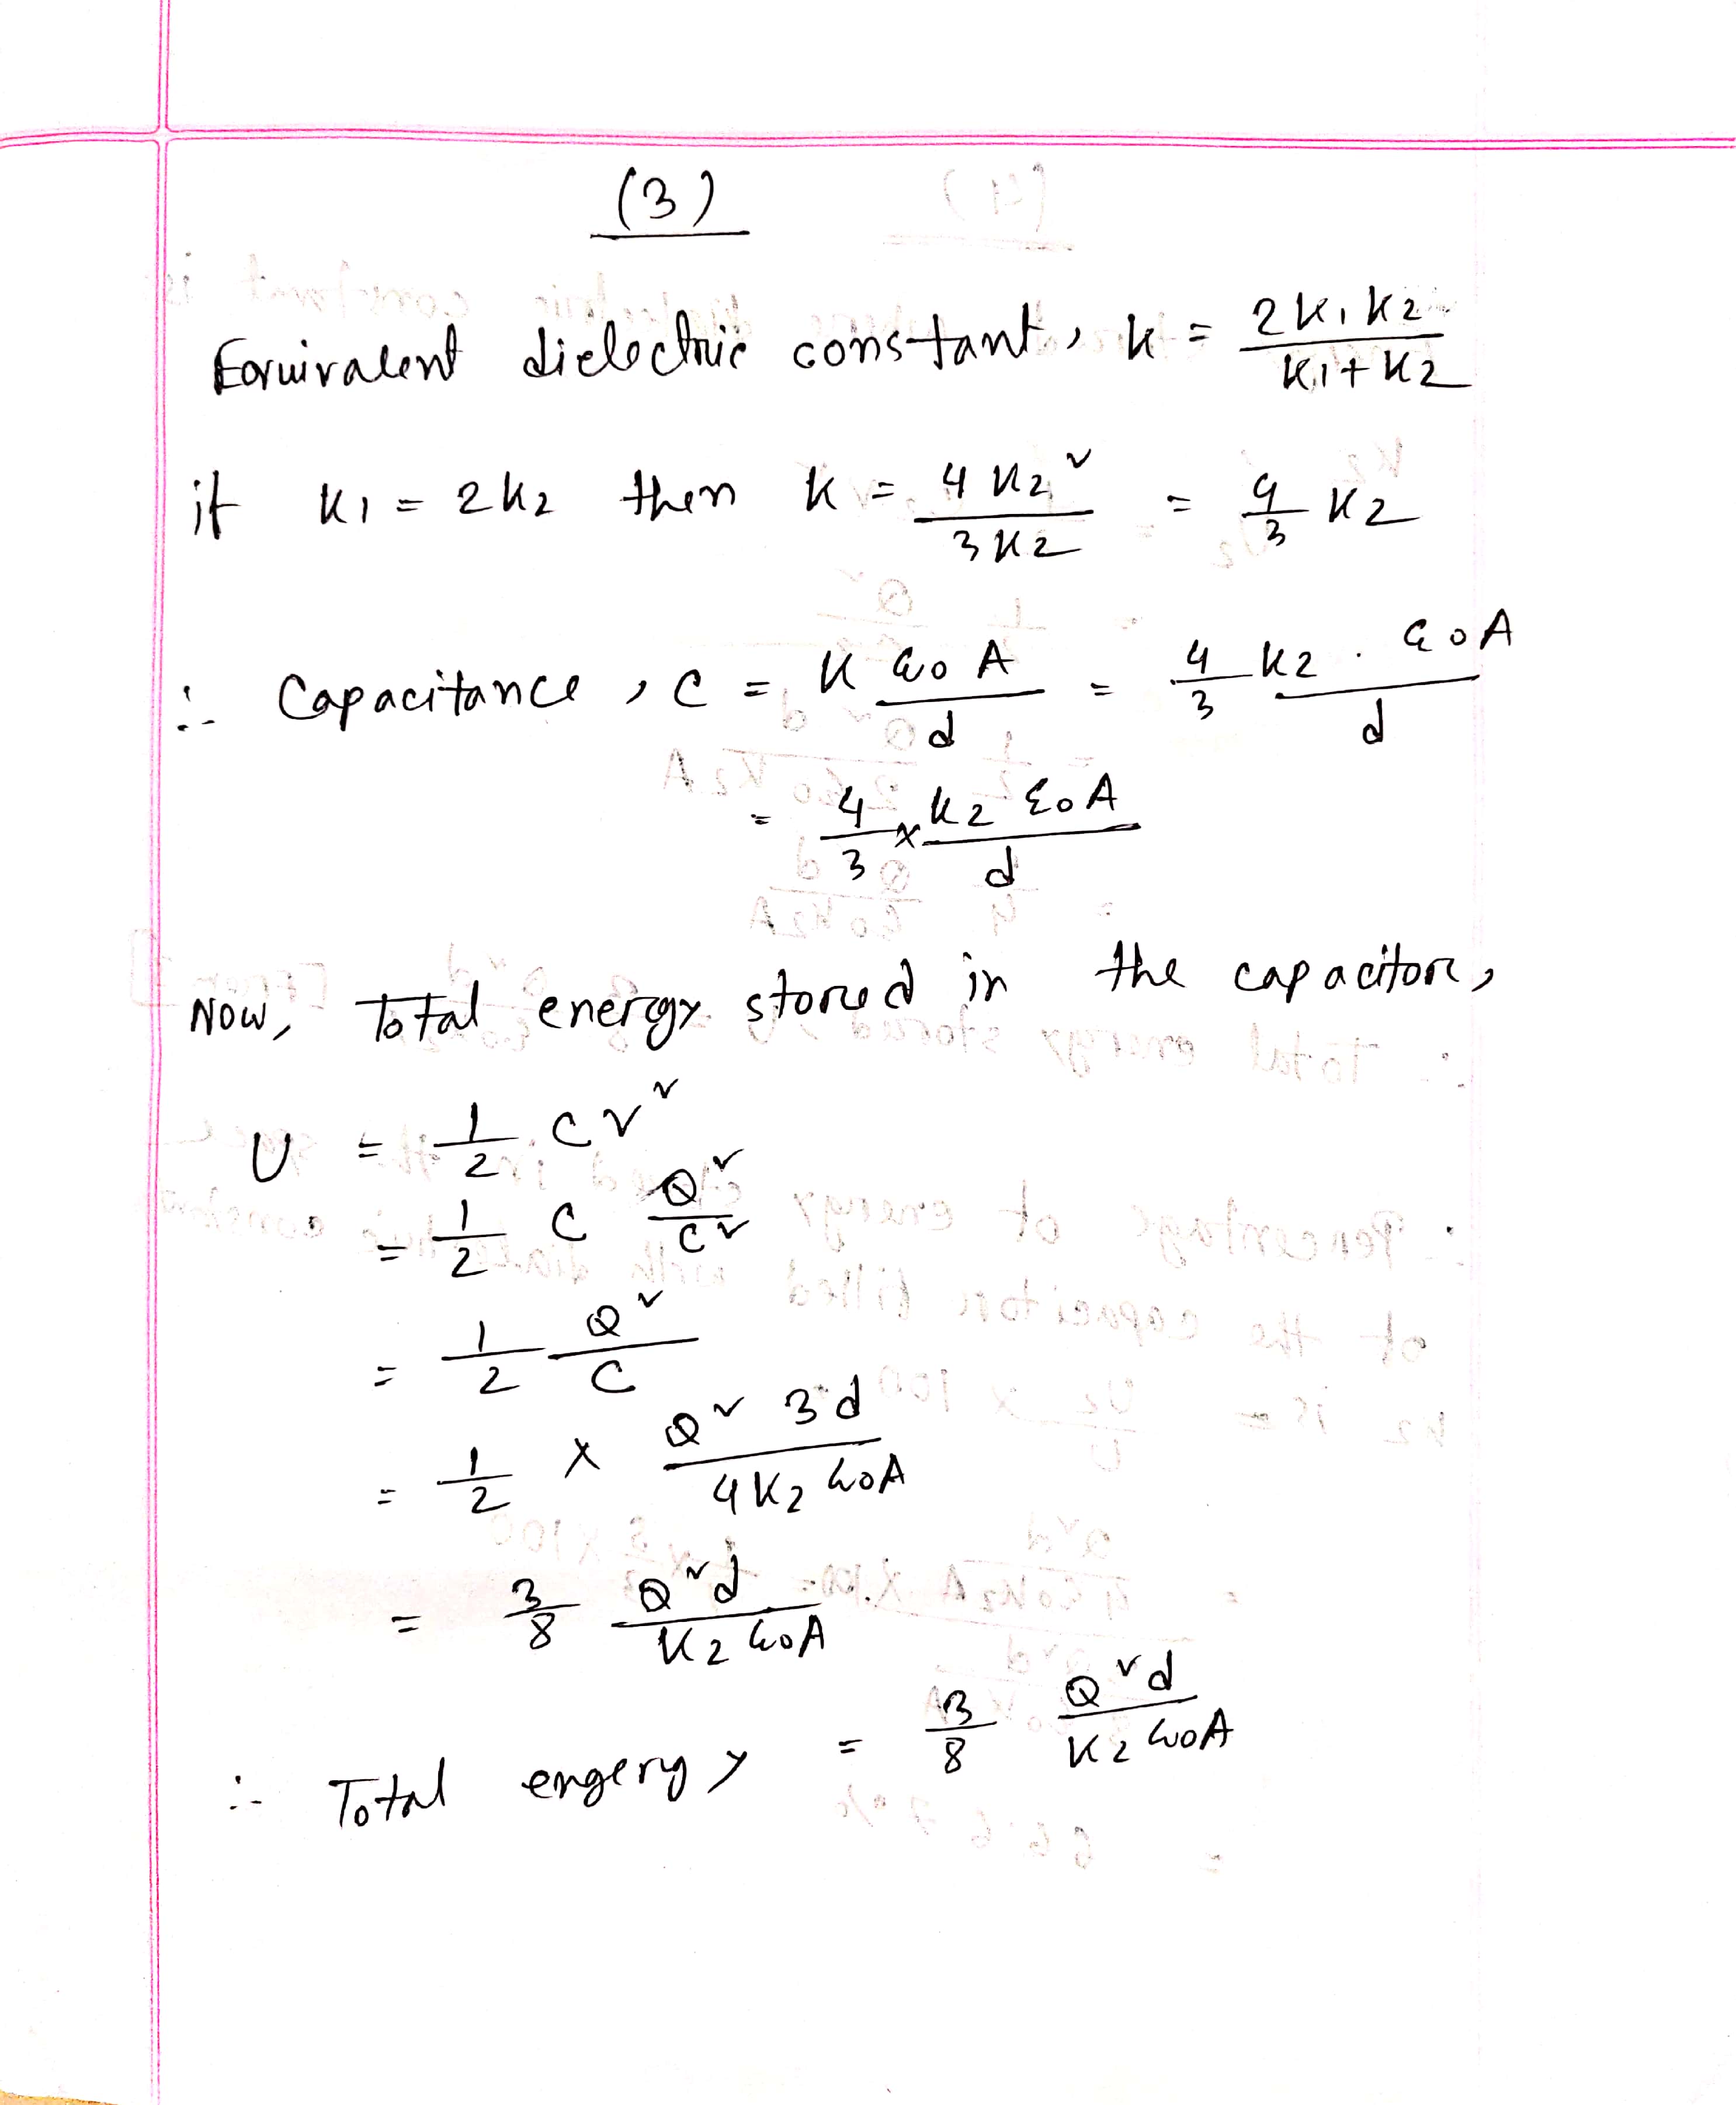 (3)
Equivalent dielectric constant, K = 2K1K2 / K1+K2
if K1 = 2K2 then K = 4K2² / 3K2 = 4/3 K2
∴ Capacitance, C = K ε0 A / d = 4/3 K2 . ε0A / d
= 4/3 × K2 ε0A / d
Now, Total energy stored in the capacitor,
U = 1/2 CV²
= 1/2 C Q²/C²
= 1/2 Q²/C
= 1/2 × Q² 3d / 4K2 ε0A
= 3/8 Q²d / K2 ε0A
∴ Total engergy = 3/8 Q²d / K2 ε0A